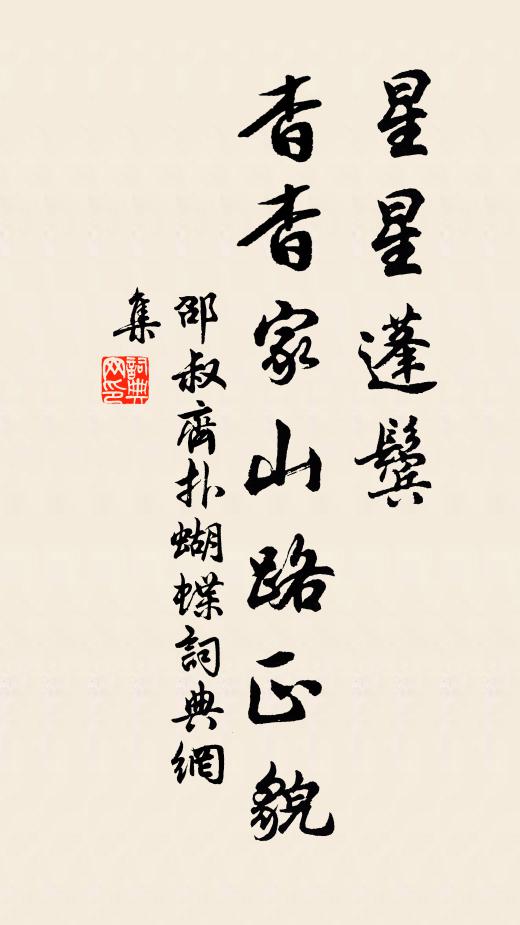 星星蓬鬢
杳杳家山路正貌
邵叔齊扑蝴蝶詞典網
集
詞典
网印